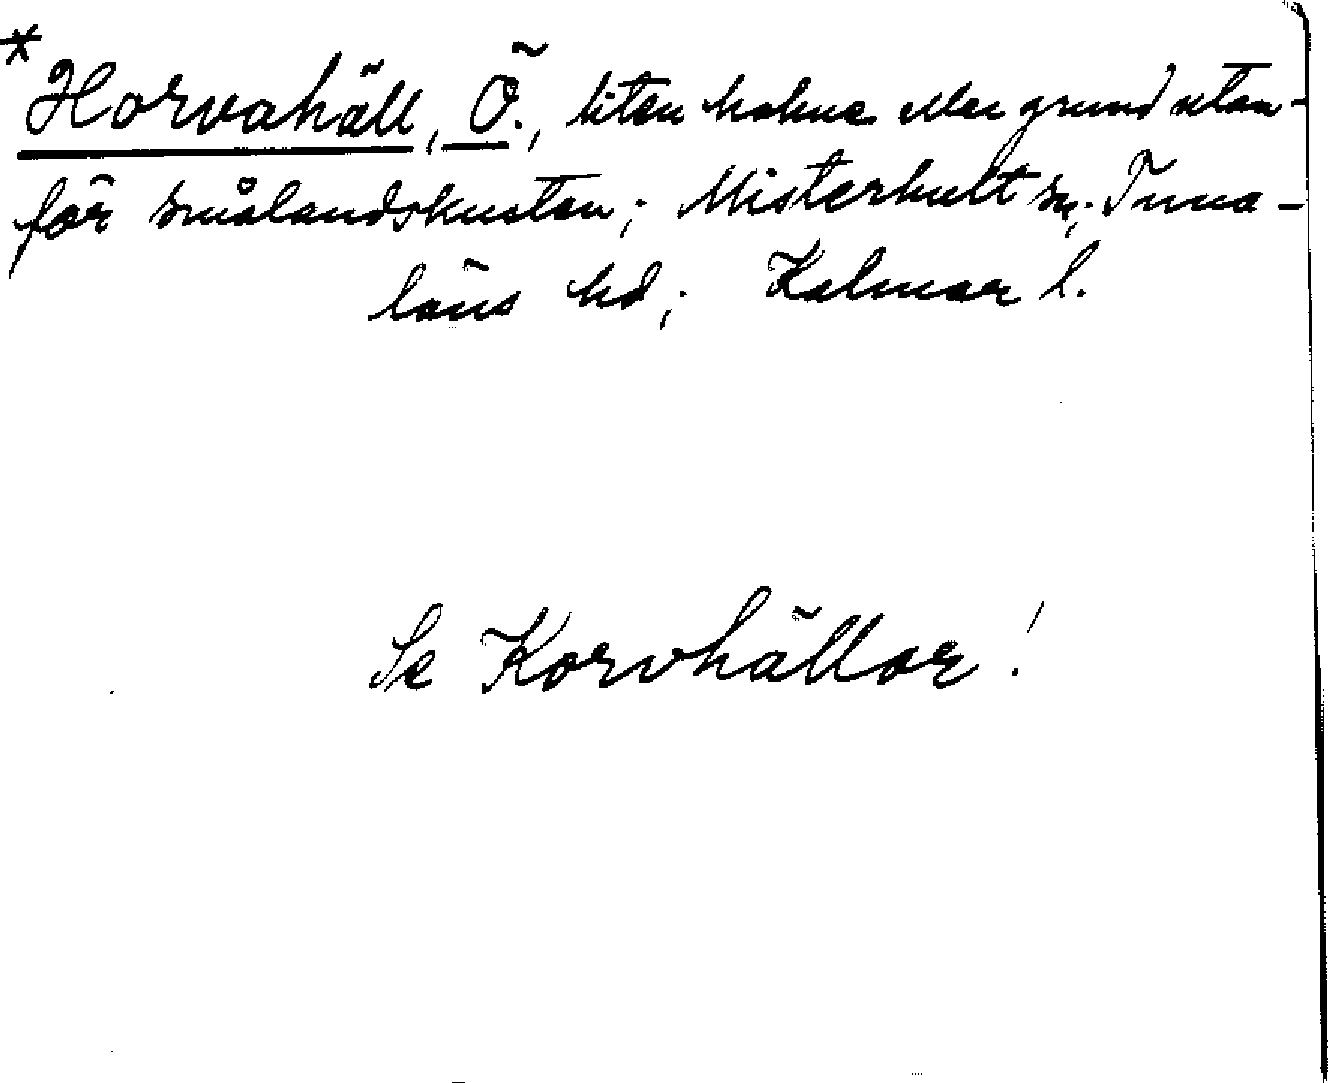 *
Horvahäll, Ö., liten holme eller grund utan-
för smålandskusten; Misterhult sn; Tuna-
läns hd; Kalmar l.
Se Korvhällor!